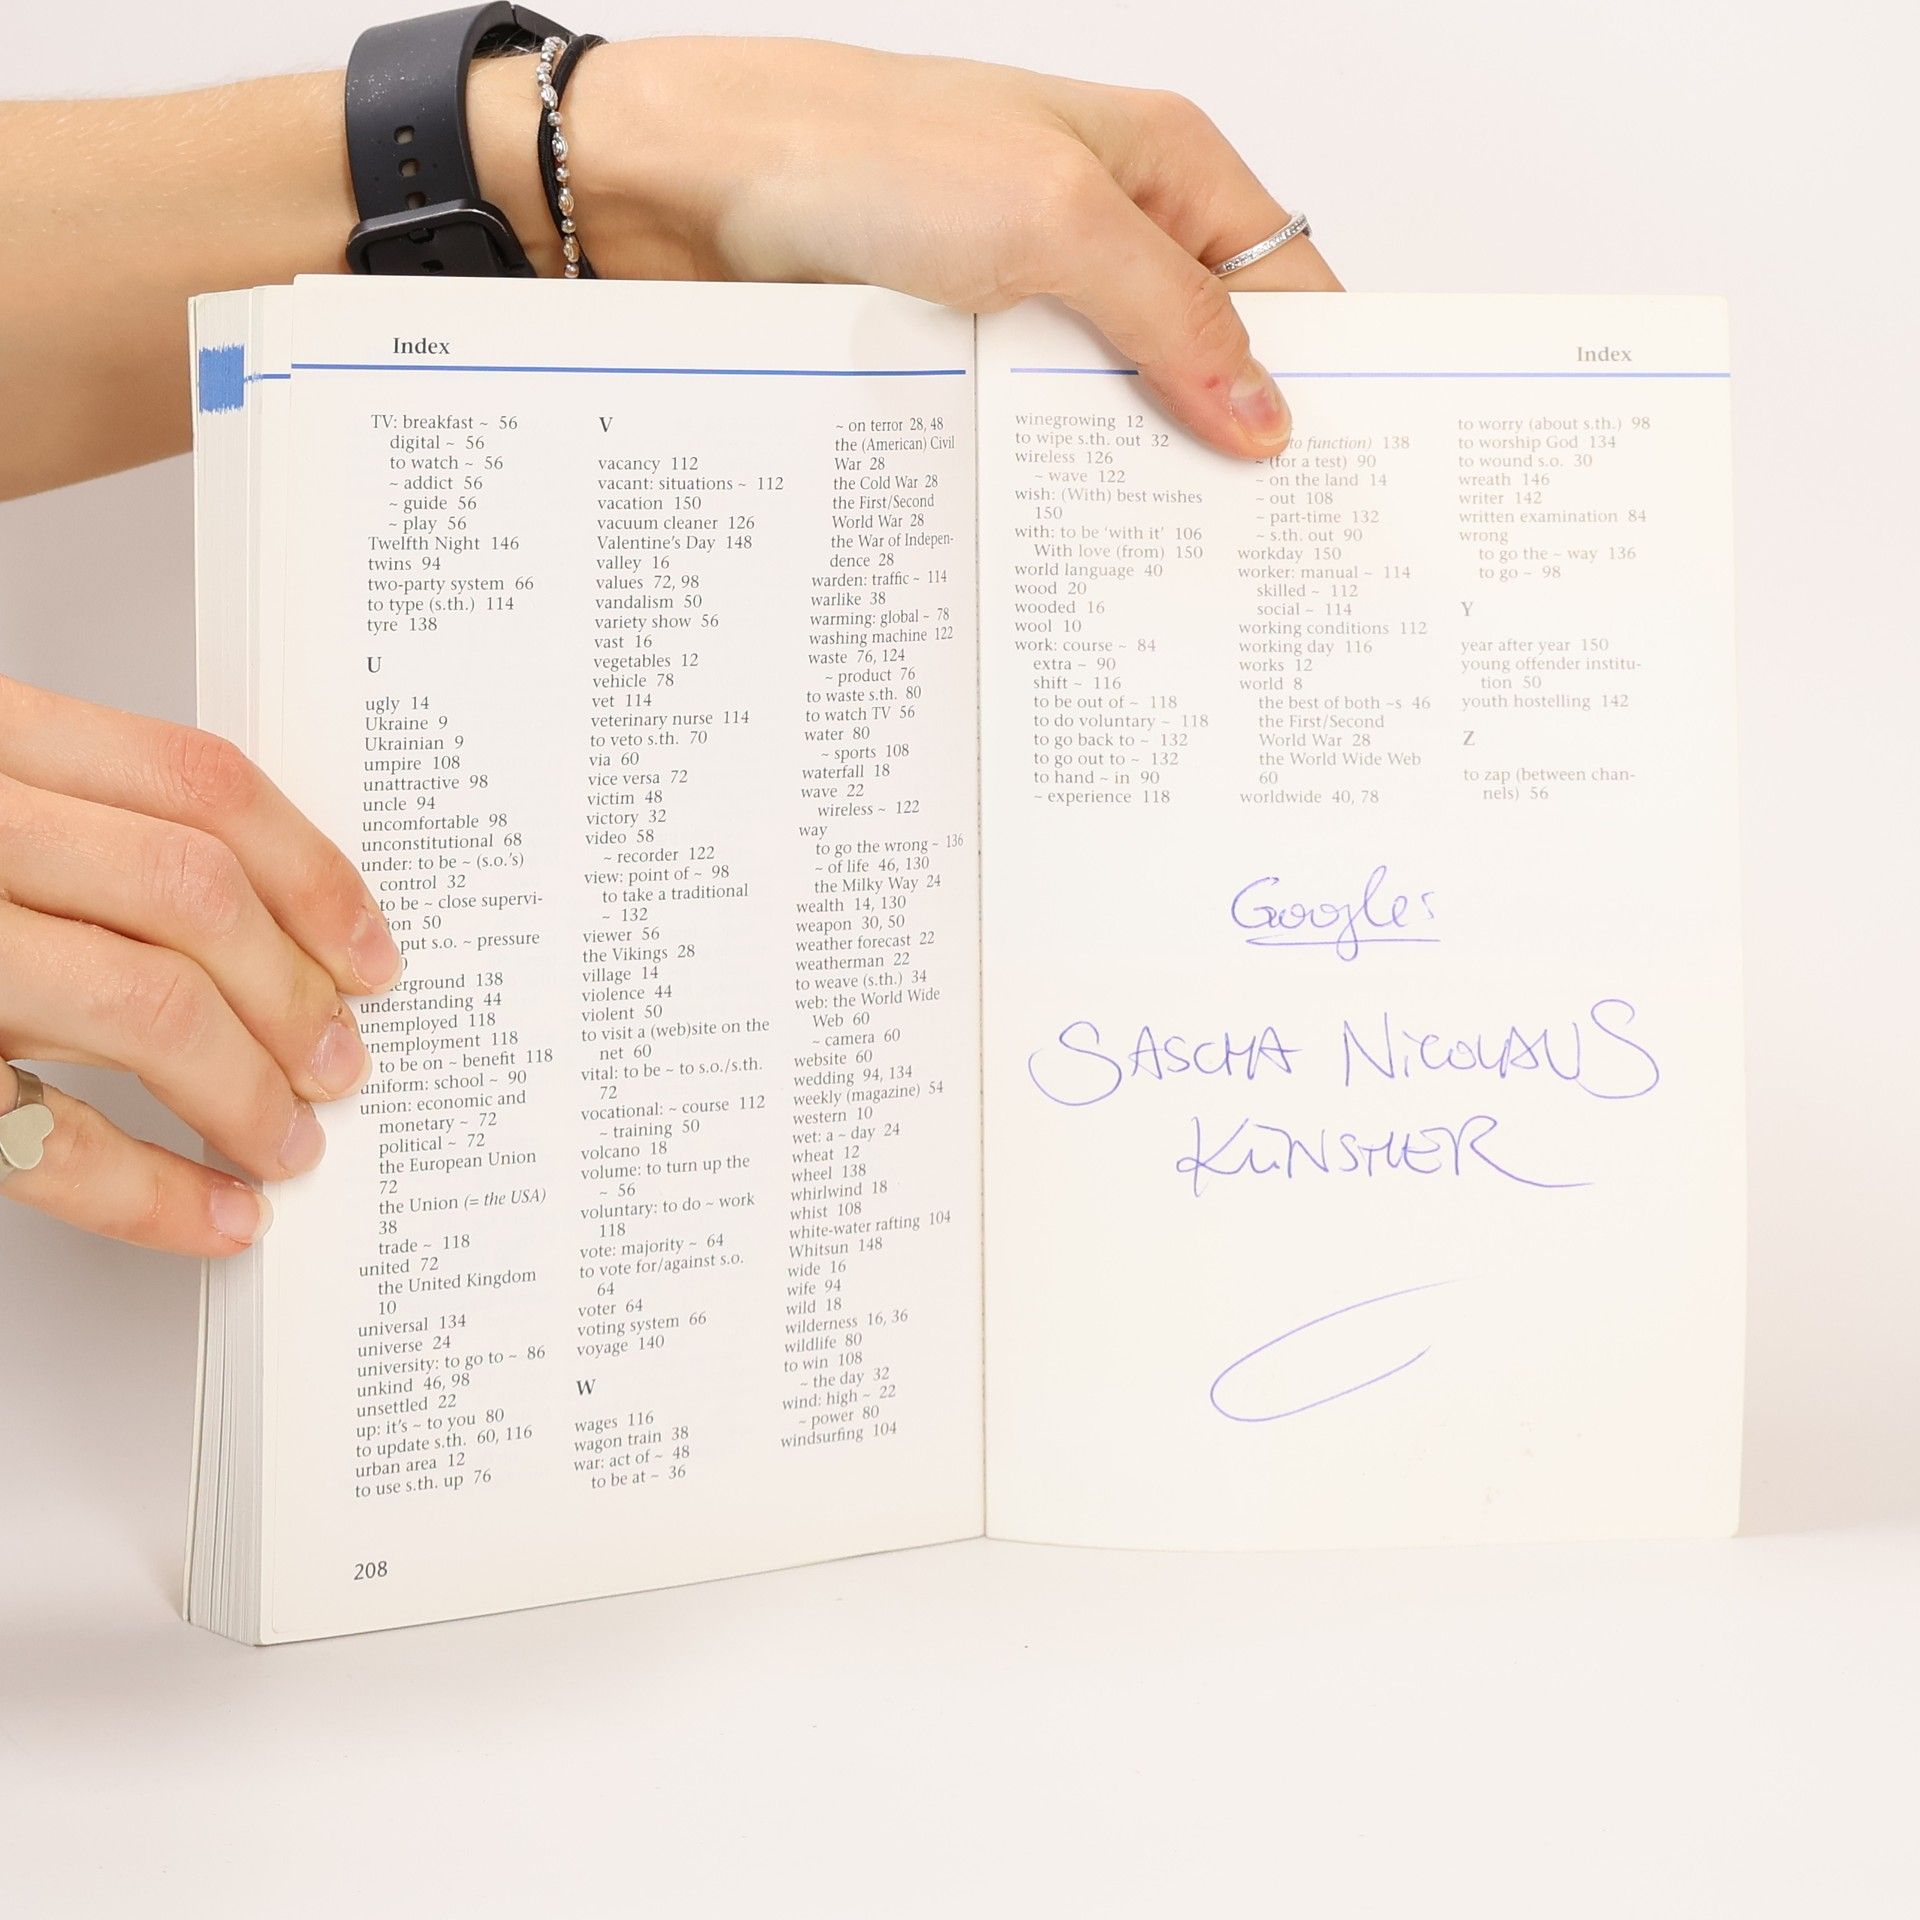 Index
TV: breakfast ~ 56
digital ~ 56
to watch ~ 56
~ addict 56
~ guide 56
~ play 56
Twelfth Night 146
twins 94
two-party system 66
to type (s.th.) 114
tyre 138
U
ugly 14
Ukraine 9
Ukrainian 9
umpire 108
unattractive 98
uncle 94
uncomfortable 98
unconstitutional 68
under: to be ~ (s.o.'s)
control 32
to be ~ close supervi-
ion 50
put s.o. ~ pressure
erground 138
understanding 44
unemployed 118
unemployment 118
to be on ~ benefit 118
uniform: school ~ 90
union: economic and
monetary ~ 72
political ~ 72
the European Union
72
the Union (= the USA)
38
trade ~ 118
united 72
the United Kingdom
10
universal 134
universe 24
university: to go to ~ 86
unkind 46, 98
unsettled 22
up: it's ~ to you 80
to update s.th. 60, 116
urban area 12
to use s.th. up 76
V
vacancy 112
vacant: situations ~ 112
vacation 150
vacuum cleaner 126
Valentine's Day 148
valley 16
values 72, 98
vandalism 50
variety show 56
vast 16
vegetables 12
vehicle 78
vet 114
veterinary nurse 114
to veto s.th. 70
via 60
vice versa 72
victim 48
victory 32
video 58
~ recorder 122
view: point of ~ 98
to take a traditional
~ 132
viewer 56
the Vikings 28
village 14
violence 44
violent 50
to visit a (web)site on the
net 60
vital: to be ~ to s.o./s.th.
72
vocational: ~ course 112
~ training 50
volcano 18
volume: to turn up the
~ 56
voluntary: to do ~ work
118
vote: majority ~ 64
to vote for/against s.o.
64
voter 64
voting system 66
voyage 140
W
wages 116
wagon train 38
war: act of ~ 48
to be at ~ 36
~ on terror 28, 48
the (American) Civil
War 28
the Cold War 28
the First/Second
World War 28
the War of Indepen-
dence 28
warden: traffic ~ 114
warlike 38
warming: global ~ 78
washing machine 122
waste 76, 124
~ product 76
to waste s.th. 80
to watch TV 56
water 80
~ sports 108
waterfall 18
wave 22
wireless ~ 122
way
to go the wrong ~ 136
~ of life 46, 130
the Milky Way 24
wealth 14, 130
weapon 30, 50
weather forecast 22
weatherman 22
to weave (s.th.) 34
web: the World Wide
Web 60
~ camera 60
website 60
wedding 94, 134
weekly (magazine) 54
western 10
wet: a ~ day 24
wheat 12
wheel 138
whirlwind 18
whist 108
white-water rafting 104
Whitsun 148
wide 16
wife 94
wild 18
wilderness 16, 36
wildlife 80
to win 108
~ the day 32
wind: high ~ 22
~ power 80
windsurfing 104
208
Index
winegrowing 12
to wipe s.th. out 32
wireless 126
~ wave 122
wish: (With) best wishes
150
with: to be 'with it' 106
With love (from) 150
world language 40
wood 20
wooded 16
wool 10
work: course ~ 84
extra ~ 90
shift ~ 116
to be out of ~ 118
to do voluntary ~ 118
to go back to ~ 132
to go out to ~ 132
to hand ~ in 90
~ experience 118
to function) 138
~ (for a test) 90
~ on the land 14
~ out 108
~ part-time 132
~ s.th. out 90
workday 150
worker: manual ~ 114
skilled ~ 112
social ~ 114
working conditions 112
working day 116
works 12
world 8
the best of both ~s 46
the First/Second
World War 28
the World Wide Web
60
worldwide 40, 78
to worry (about s.th.) 98
to worship God 134
to wound s.o. 30
wreath 146
writer 142
written examination 84
wrong
to go the ~ way 136
to go ~ 98
Y
year after year 150
young offender institu-
tion 50
youth hostelling 142
Z
to zap (between chan-
nels) 56
SASCHA NiCOLAUS
KÜNSTLER